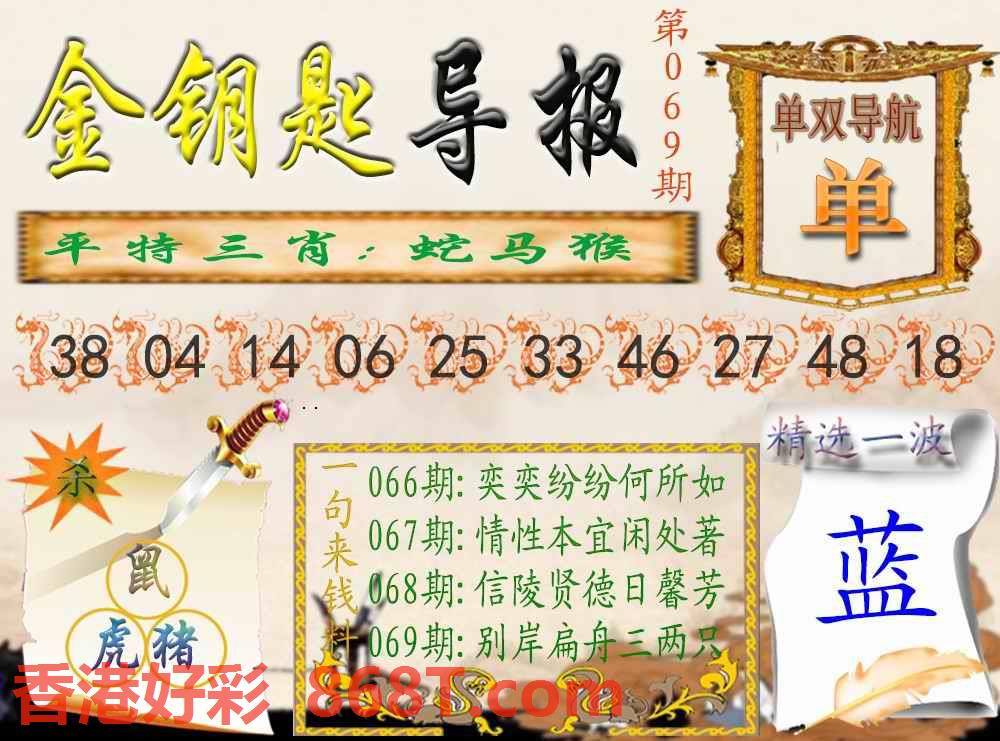 金钥匙导报
第069期
单双导航
单
平特三肖：蛇马猴
38 04 14 06 25 33 46 27 48 18
杀
鼠
虎 猪
一句来钱料
066期: 奕奕纷纷何所如
067期: 情性本宜闲处著
068期: 信陵贤德日馨芳
069期: 别岸扁舟三两只
精选一波
蓝
香港好彩 868T.com